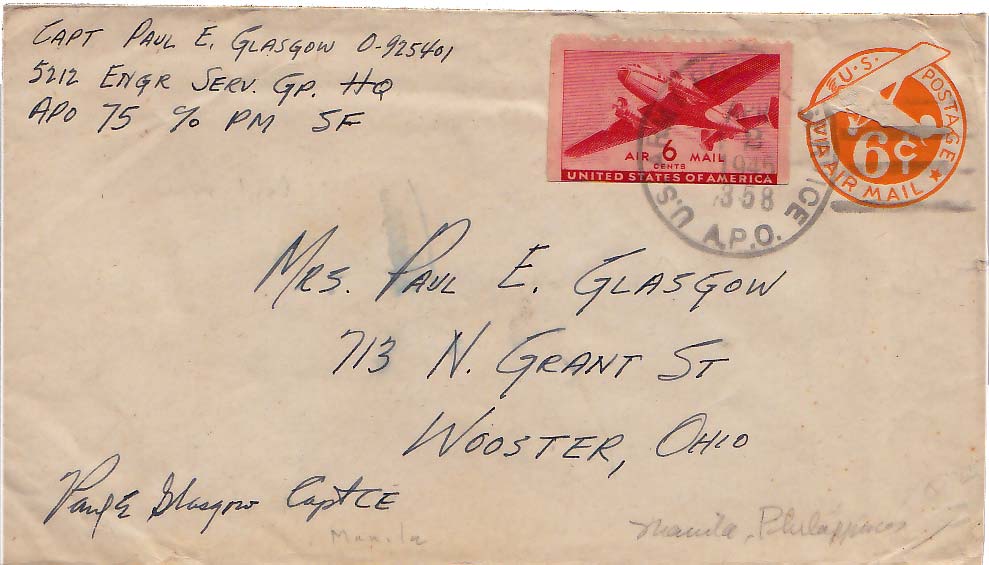 CAPT PAUL E. GLASGOW O-925401
5212 ENGR SERV. GP. HQ
APO 75 % PM SF
AIR 6 MAIL
CENTS
UNITED STATES OF AMERICA
U.S. POSTAGE
6¢
VIA AIR MAIL
U.S. ARMY
2
1945
358
A.P.O.
MRS. PAUL E. GLASGOW
713 N. GRANT ST
WOOSTER, OHIO
Paul E Glasgow Capt CE
Manila
Manila, Philappines